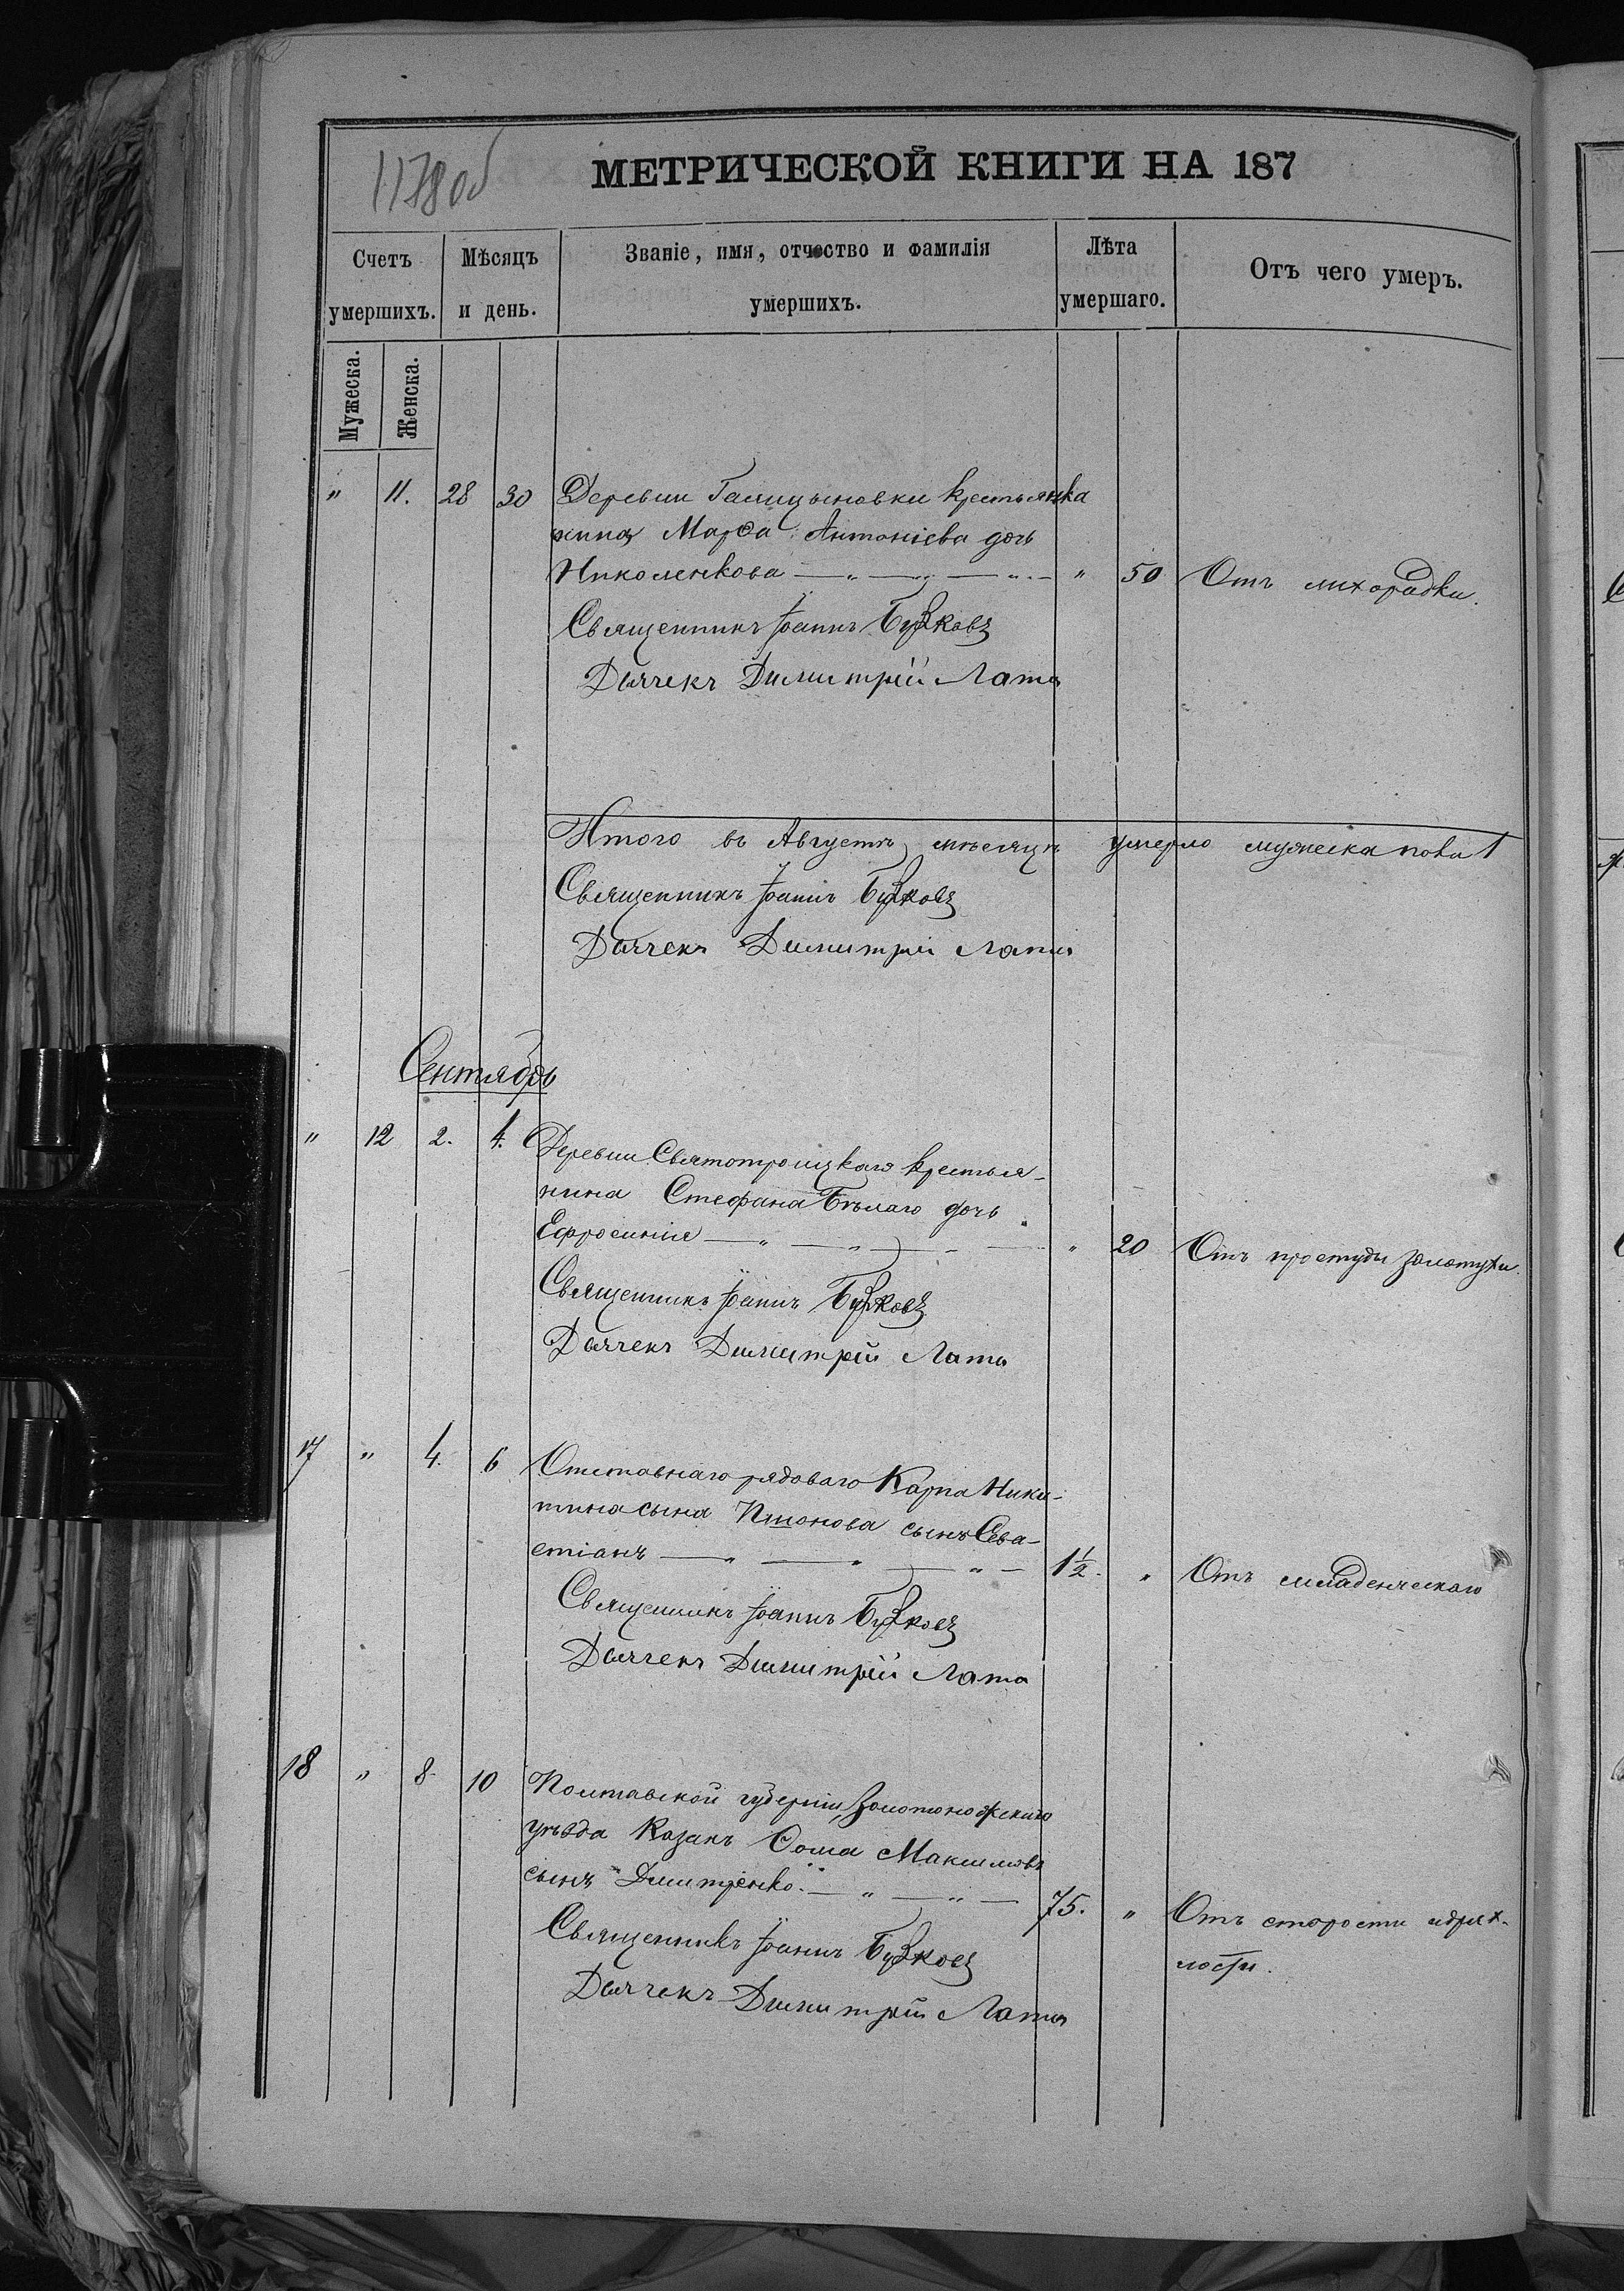 1178об
МЕТРИЧЕСКОЙ КНИГИ НА 187
Счетъ умершихъ.
Мѣсяцъ и день.
Званіе, имя, отчество и фамилія умершихъ.
Лѣта умершаго.
Отъ чего умеръ.
Мужеска.
Женска.
" 11. 28 30 Деревни Галицыновки крестьянка
Марѳа Антоніева дочь
Николенкова — " — " — " — " 50 Отъ лихорадки.
Священникъ Іоаннъ
Дьячекъ Димитрій Лата
Итого въ Августѣ мѣсяцѣ умерло мужеска пола 1
Священникъ Іоаннъ
Дьячекъ Димитрій Лата
Сентябрь
" 12 2. 4. Деревни Святотроицкаго крестья-
нина Стефана Бѣлаго дочь
Ефросинія — " — " — " 20 Отъ простуды золотухи.
Священникъ Іоаннъ
Дьячекъ Димитрій Лата
17 " 4. 6 Отставнаго рядоваго Карпа Ники-
тина сына Пшонова сынъ Сева-
стіанъ — " — " — " — 1½. " Отъ младенческаго
Священникъ Іоаннъ
Дьячекъ Димитрій Лата
18 " 8. 10 Полтавской губерніи, Золотоножскаго
уѣзда Казакъ Ѳома Максимовъ
сынъ Дмитренко. — " — " — 75. " Отъ старости и дрях-
лости.
Священникъ Іоаннъ
Дьячекъ Димитрій Лата